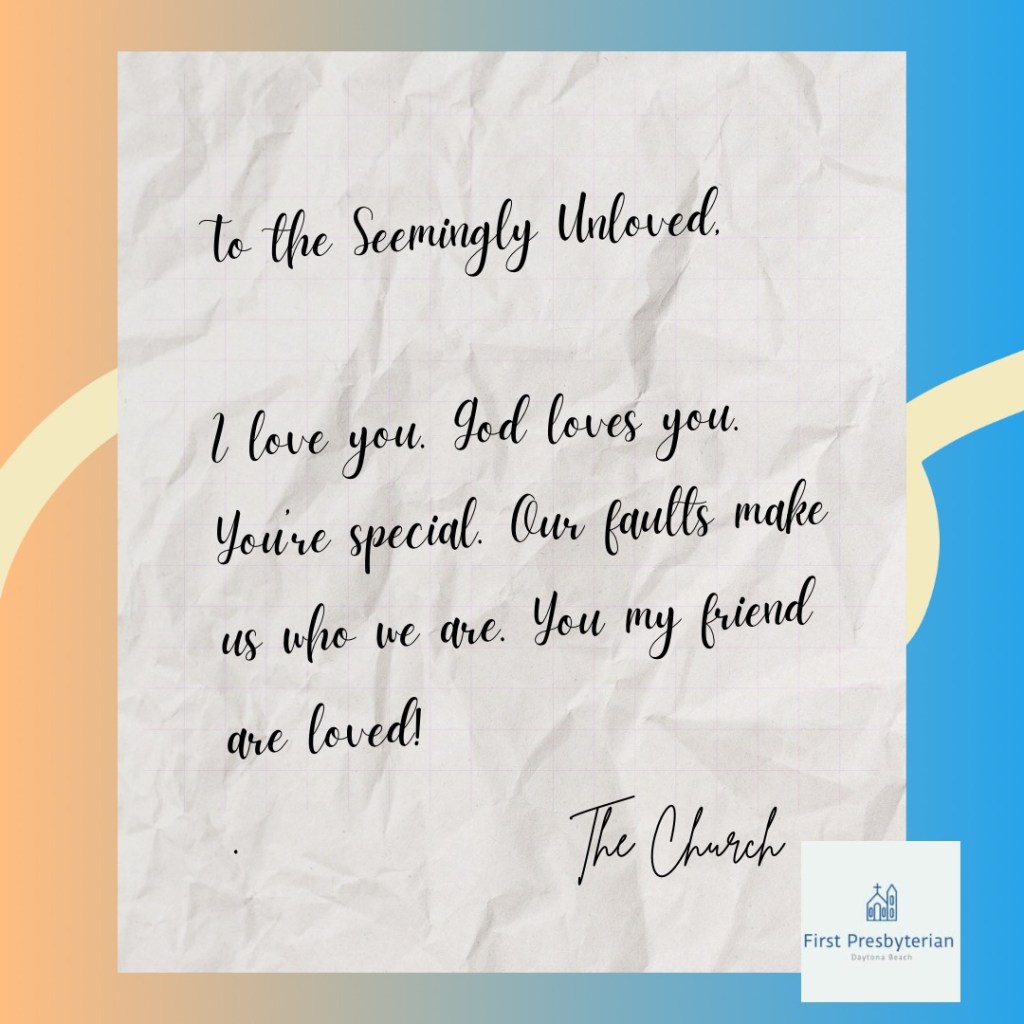 to the Seemingly Unloved,
I love you. God loves you.
You're special. Our faults make
us who we are. You my friend
are loved!
.
The Church
First Presbyterian
Daytona Beach